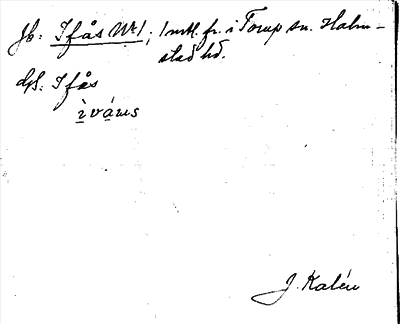 jb: Ifås Nr 1; 1 mtl. fr. i Torup sn. Halm-
stad hd.
dpl. Ifås
ìváns
J. Kalén